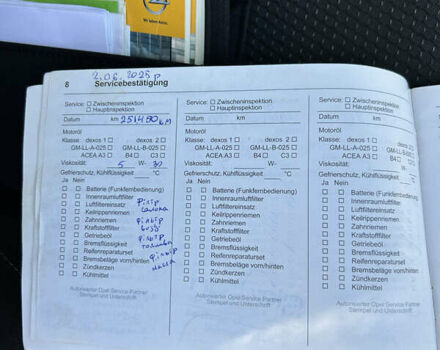 Wir leben Autos.
8
2.06.2025 р
Servicebestätigung
Service: □ Zwischeninspektion
□ Hauptinspektion
Datum km 251480 км
Motoröl
Klasse: dexos 1 □ dexos 2 □
GM-LL-A-025 □ GM-LL-B-025 □
ACEA A3 □ B4 □ C3 □
Viskosität: 5 W- 30
Gefrierschutz, Kühlflüssigkeit °C
Ja Nein
□ □ Batterie (Funkfernbedienung)
□ □ Innenraumluftfilter
□ □ Luftfiltereinsatz
□ □ Keilrippenriemen
□ □ Zahnriemen
□ □ Kraftstofffilter
□ □ Getriebeöl
□ □ Bremsflüssigkeit
□ □ Reifenreparaturset
□ □ Bremsbeläge vorn/hinten
□ □ Zündkerzen
□ □ Kühlmittel
фільтр
салона
фільтр
возд
фільтр
топлива
фільтр
масла
Autorisierter Opel Service Partner
Stempel und Unterschrift
Service: □ Zwischeninspektion
□ Hauptinspektion
Datum km
Motoröl
Klasse: dexos 1 □ dexos 2 □
GM-LL-A-025 □ GM-LL-B-025 □
ACEA A3 □ B4 □ C3 □
Viskosität: W-
Gefrierschutz, Kühlflüssigkeit °C
Ja Nein
□ □ Batterie (Funkfernbedienung)
□ □ Innenraumluftfilter
□ □ Luftfiltereinsatz
□ □ Keilrippenriemen
□ □ Zahnriemen
□ □ Kraftstofffilter
□ □ Getriebeöl
□ □ Bremsflüssigkeit
□ □ Reifenreparaturset
□ □ Bremsbeläge vorn/hinten
□ □ Zündkerzen
□ □ Kühlmittel
Autorisierter Opel Service Partner
Stempel und Unterschrift
Service: □ Zwischeninspektion
□ Hauptinspektion
Datum km
Motoröl
Klasse: dexos 1 □ dexos 2 □
GM-LL-A-025 □ GM-LL-B-025 □
ACEA A3 □ B4 □ C3 □
Viskosität: W-
Gefrierschutz, Kühlflüssigkeit °C
Ja Nein
□ □ Batterie (Funkfernbedienung)
□ □ Innenraumluftfilter
□ □ Luftfiltereinsatz
□ □ Keilrippenriemen
□ □ Zahnriemen
□ □ Kraftstofffilter
□ □ Getriebeöl
□ □ Bremsflüssigkeit
□ □ Reifenreparaturset
□ □ Bremsbeläge vorn/hinten
□ □ Zündkerzen
□ □ Kühlmittel
Autorisierter Opel Service Partner
Stempel und Unterschrift